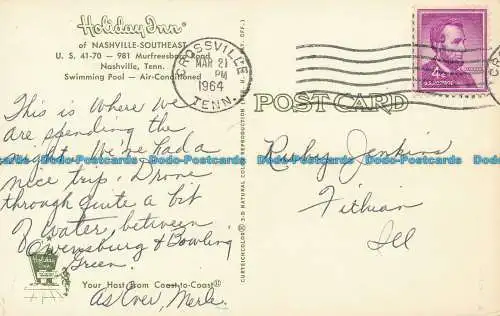 Holiday Inn
of NASHVILLE-SOUTHEAST
U. S. 41-70 — 981 Murfreesboro Road
Nashville, Tenn.
Swimming Pool — Air-Conditioned
CROSSVILLE
MAR 21
PM
1964
TENN.
4¢
POST CARD
This is where we
are spending the
night. We've had a
nice trip. Drove
through quite a bit
of water, between
Owensburg & Bowling
Green.
As Ever, Merle
Your Host From Coast-to-Coast
Ruby Jenkins
Fithian
Ill
CURTEICHCOLOR® 3-D NATURAL COLOR REPRODUCTION
Dodo-Postcards Dodo-Postcards Dodo-Postcards Dodo-Postcards Dodo-Postcards Dodo-Postcards